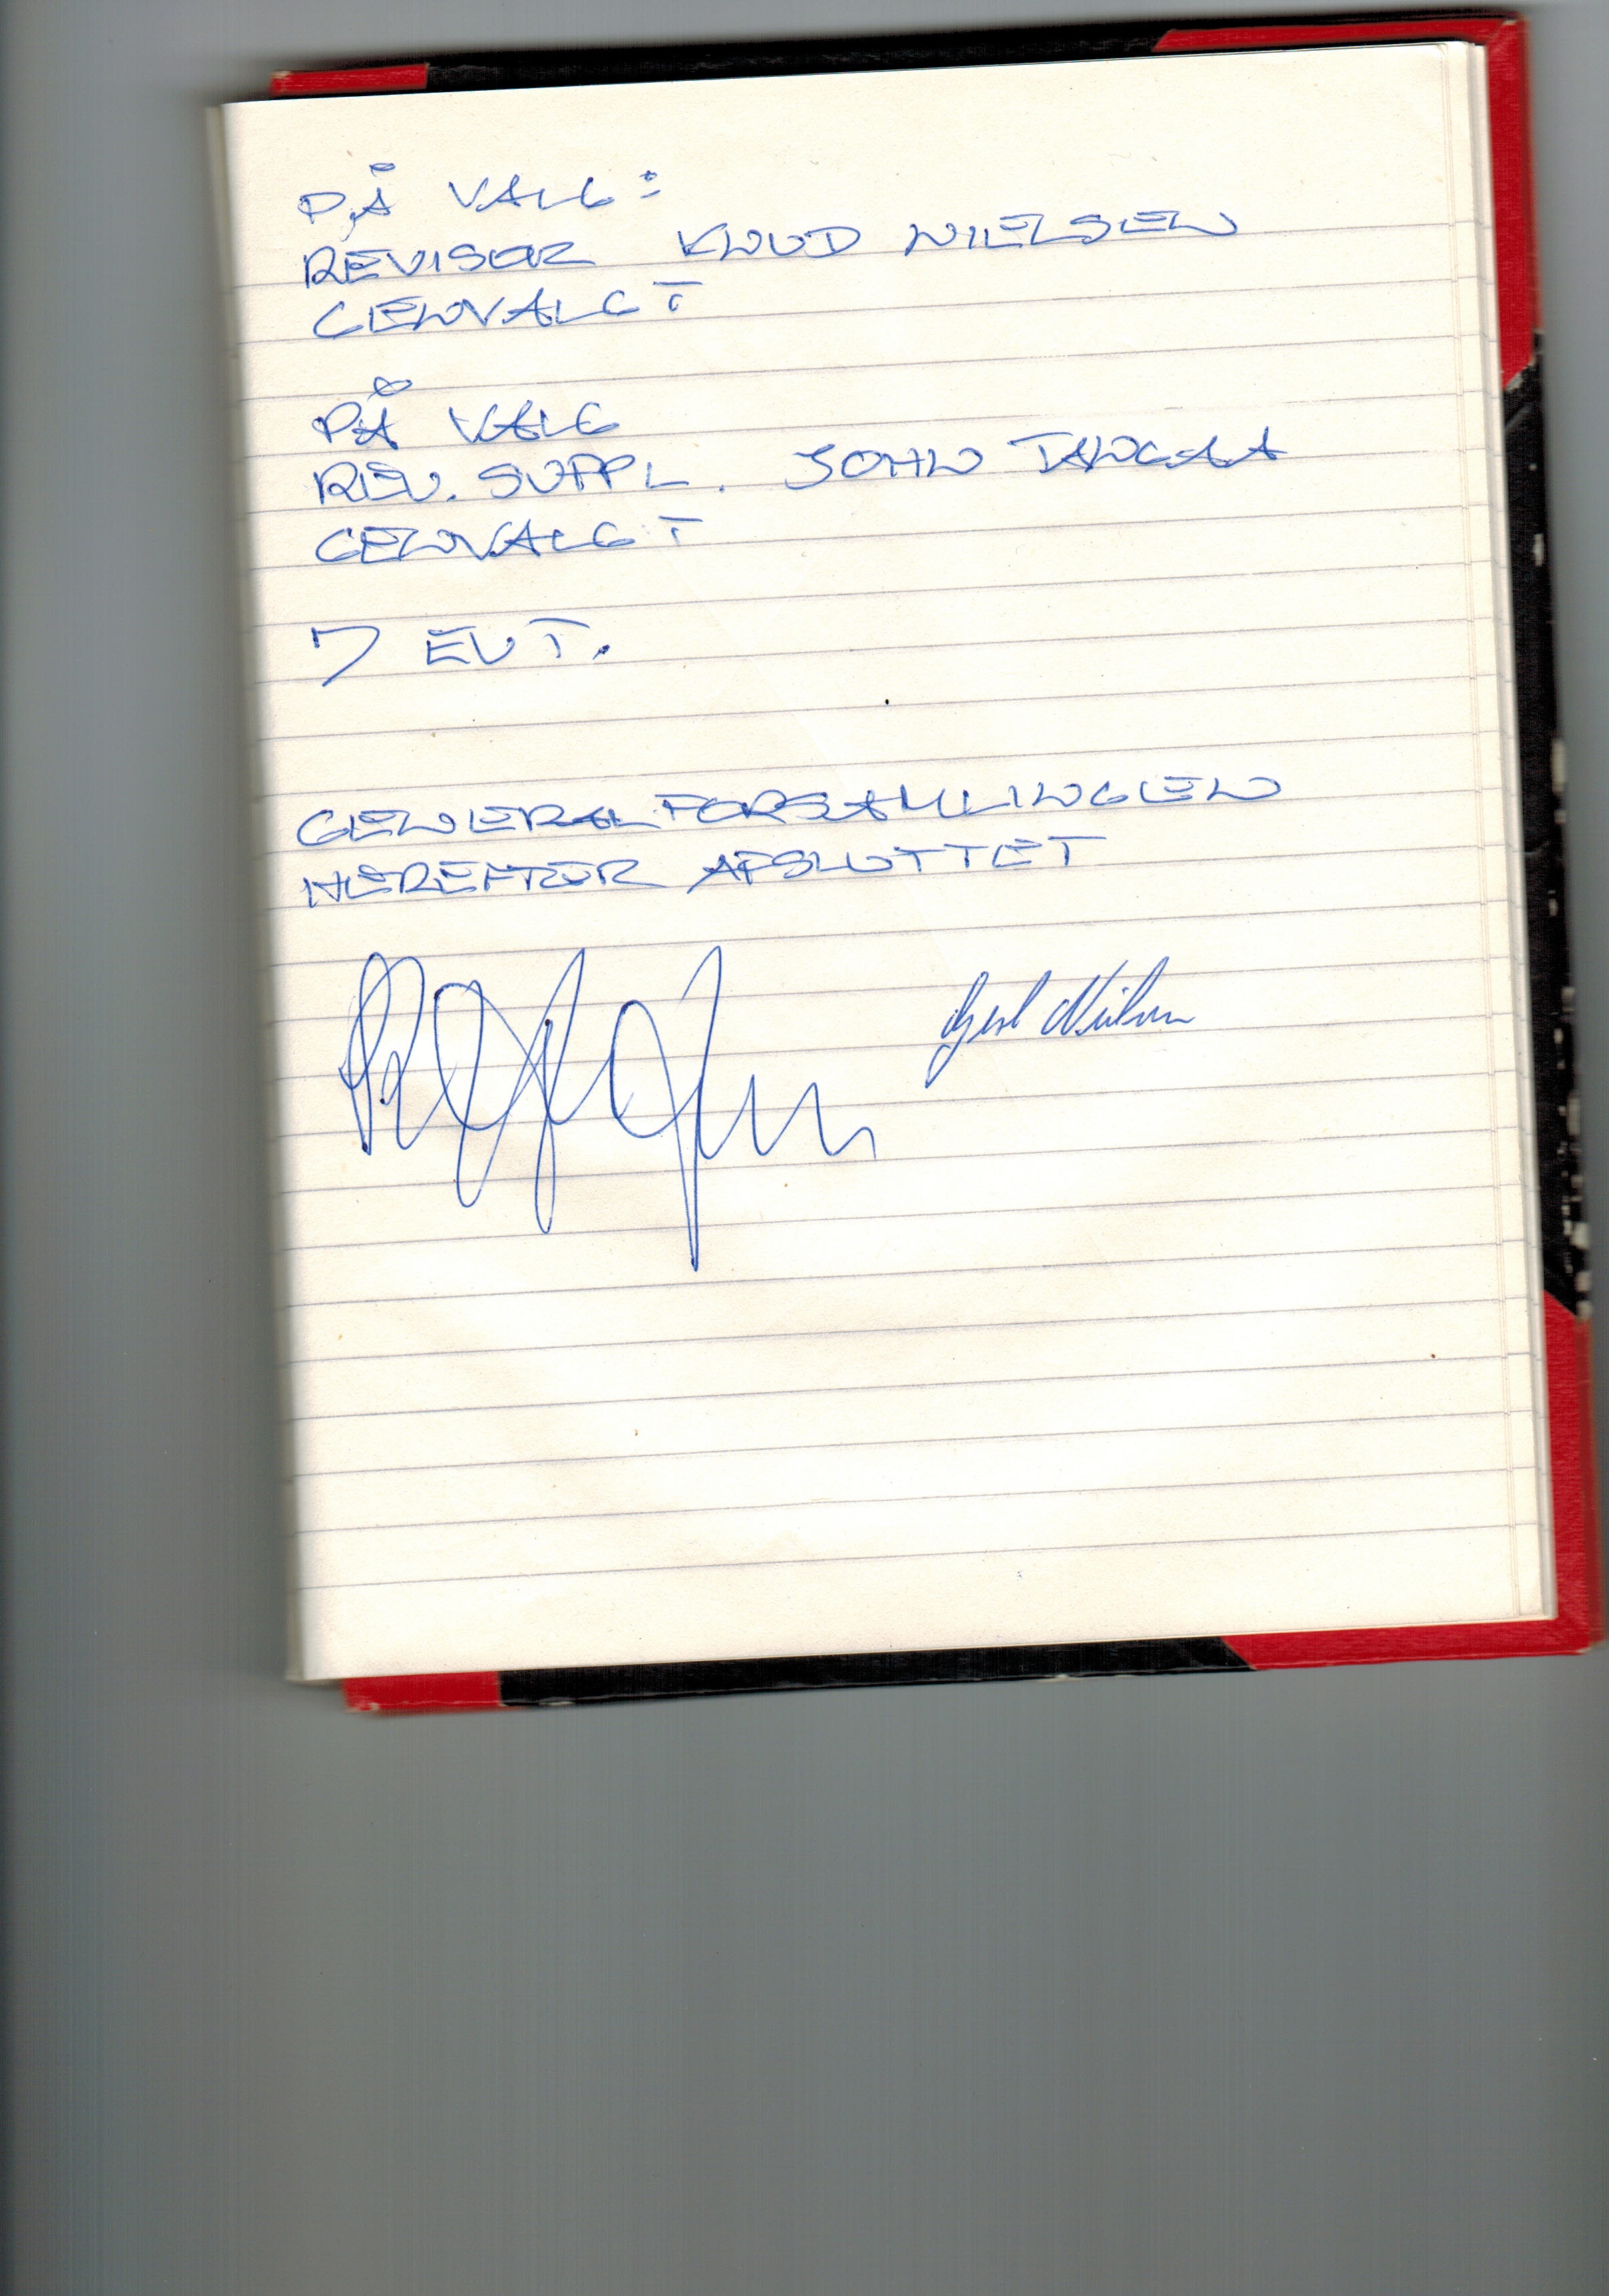 PÅ VALG:
REVISOR KNUD NIELSEN
GENVALGT
PÅ VALG
REV. SUPPL. JOHN TANGAA
GENVALGT
7 EVT.
GENERALFORSAMLINGEN
HEREFTER AFSLUTTET
Nielsen